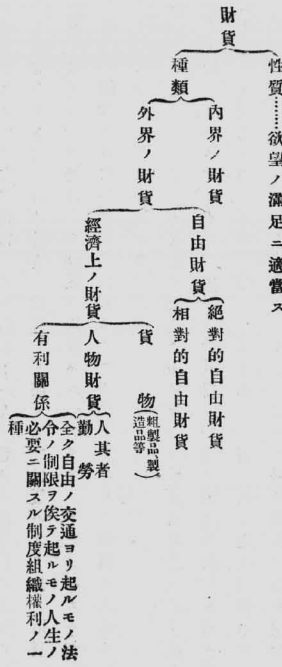 財貨
性質……欲望ノ滿足ニ適當ス
種類
內界ノ財貨
外界ノ財貨
自由財貨
絕對的自由財貨
相對的自由財貨
經濟上ノ財貨
貨物(粗製品、製造品等)
人物財貨
人其者
勤勞
有利關係
全ク自由ノ交通ヨリ起ルモノ法
令ノ制限ヲ俟テ起ルモノ人生ノ
必要ニ關スル制度組織權利ノ一
種